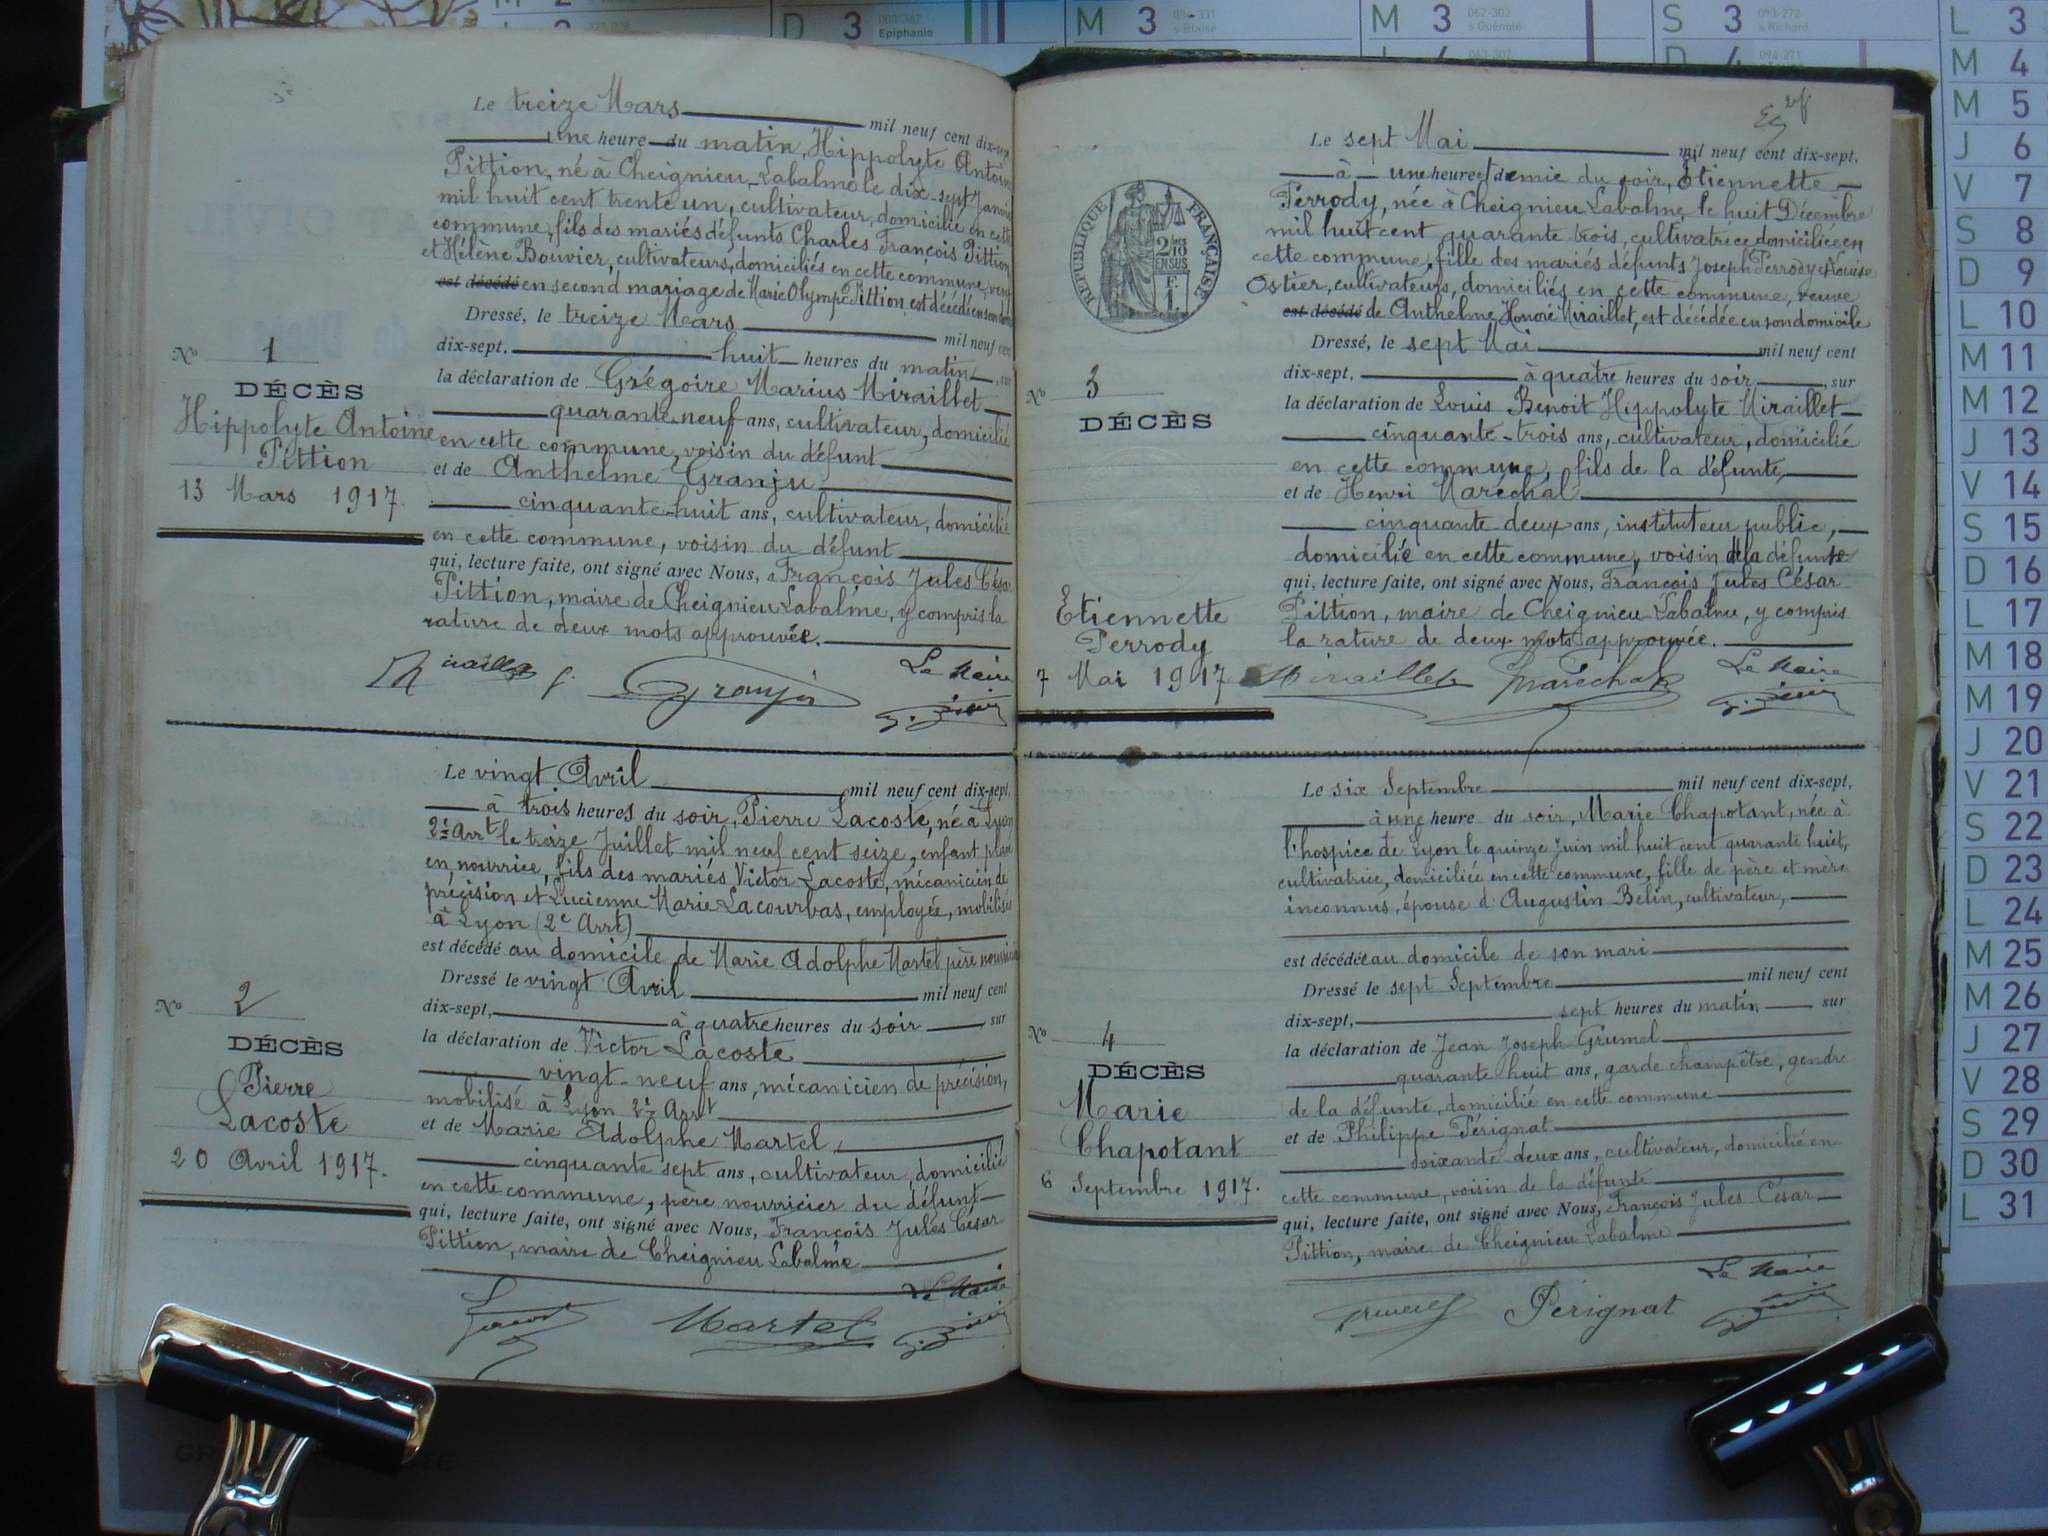 Le treize Mars mil neuf cent dix-sept
une heure du matin, Hippolyte Antoine
Pittion, né à Cheignieu-Labalme le dix-sept Janvier
mil huit cent trente un, cultivateur, domicilié en cette
commune, fils des mariés défunts Charles François Pittion
et Hélène Bouvier, cultivateurs, domiciliés en cette commune, veuf
est décédé en second mariage de Marie Olympe Pittion, est décédé en son domicile
Dressé, le treize Mars mil neuf cent
dix-sept, huit heures du matin, sur
la déclaration de Grégoire Marius Miraillet
quarante neuf ans, cultivateur, domicilié
en cette commune, voisin du défunt
et de Anthelme Granju
cinquante-huit ans, cultivateur, domicilié
en cette commune, voisin du défunt
qui, lecture faite, ont signé avec Nous, François Jules César
Pittion, maire de Cheignieu Labalme, y compris la
rature de deux mots approuvée.
Le Maire
No 1
DÉCÈS
Hippolyte Antoine
Pittion
13 Mars 1917.
Le vingt Avril mil neuf cent dix-sept,
à trois heures du soir, Pierre Lacoste, né à Lyon
2e Arrt le treize Juillet mil neuf cent seize, enfant placé
en nourrice, fils des mariés Victor Lacoste, mécanicien de
précision et Lucienne Marie Lacourbas, employée, mobilisés
à Lyon (2e Arrt)
est décédé au domicile de Marie Adolphe Martel père nourricier
Dressé le vingt Avril mil neuf cent
dix-sept, à quatre heures du soir, sur
la déclaration de Victor Lacoste
vingt-neuf ans, mécanicien de précision,
mobilisé à Lyon 2e Arrt
et de Marie Adolphe Martel,
cinquante sept ans, cultivateur, domicilié
en cette commune, père nourricier du défunt
qui, lecture faite, ont signé avec Nous, François Jules César
Pittion, maire de Cheignieu Labalme
Martel
Le Maire
No 2
DÉCÈS
Pierre
Lacoste
20 Avril 1917.
Le sept Mai mil neuf cent dix-sept,
à une heure et demie du soir, Etiennette
Perrody, née à Cheignieu Labalme, le huit Décembre
mil huit cent quarante trois, cultivatrice domiciliée en
cette commune, fille des mariés défunts Joseph Perrody et Louise
Ostier, cultivateurs, domiciliés en cette commune, veuve
est décédé de Anthelme Honoré Miraillet, est décédée en son domicile
Dressé, le sept Mai mil neuf cent
dix-sept, à quatre heures du soir, sur
la déclaration de Louis Benoit Hippolyte Miraillet
cinquante-trois ans, cultivateur, domicilié
en cette commune, fils de la défunte,
et de Henri Maréchal
cinquante-deux ans, instituteur public,
domicilié en cette commune, voisin de la défunte
qui, lecture faite, ont signé avec Nous, François Jules César
Pittion, maire de Cheignieu-Labalme, y compris
la rature de deux mots approuvée.
Miraillet Maréchal Le Maire
RÉPUBLIQUE FRANÇAISE
2/10
EN SUS
No 3
DÉCÈS
Etiennette
Perrody
7 Mai 1917
Le six Septembre mil neuf cent dix-sept,
à une heure du soir, Marie Chapotant, née à
l'hospice de Lyon le quinze Juin mil huit cent quarante huit,
cultivatrice, domiciliée en cette commune, fille de père et mère
inconnus, épouse d'Augustin Belin, cultivateur,
est décédée au domicile de son mari
Dressé le sept Septembre mil neuf cent
dix-sept, sept heures du matin sur
la déclaration de Jean Joseph Grumel
quarante huit ans, garde champêtre, gendre
de la défunte, domicilié en cette commune
et de Philippe Pérignat
soixante deux ans, cultivateur, domicilié en
cette commune, voisin de la défunte
qui, lecture faite, ont signé avec Nous, François Jules César
Pittion, maire de Cheignieu Labalme
Perignat Le Maire
No 4
DÉCÈS
Marie
Chapotant
6 Septembre 1917.
D 3 Epiphanie
M 3 s Blaise
M 3 s Guénolé
S 3 s Richard
L 3
M 4
M 5
J 6
V 7
S 8
D 9
L 10
M 11
M 12
J 13
V 14
S 15
D 16
L 17
M 18
M 19
J 20
V 21
S 22
D 23
L 24
M 25
M 26
J 27
V 28
S 29
D 30
L 31